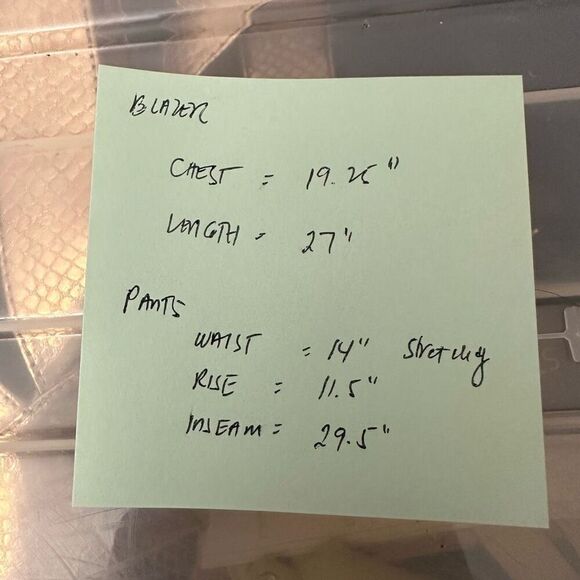 BLAZER
CHEST = 19.25"
LENGTH = 27"
PANTS
WAIST = 14" stretchy
RISE = 11.5"
INSEAM = 29.5"